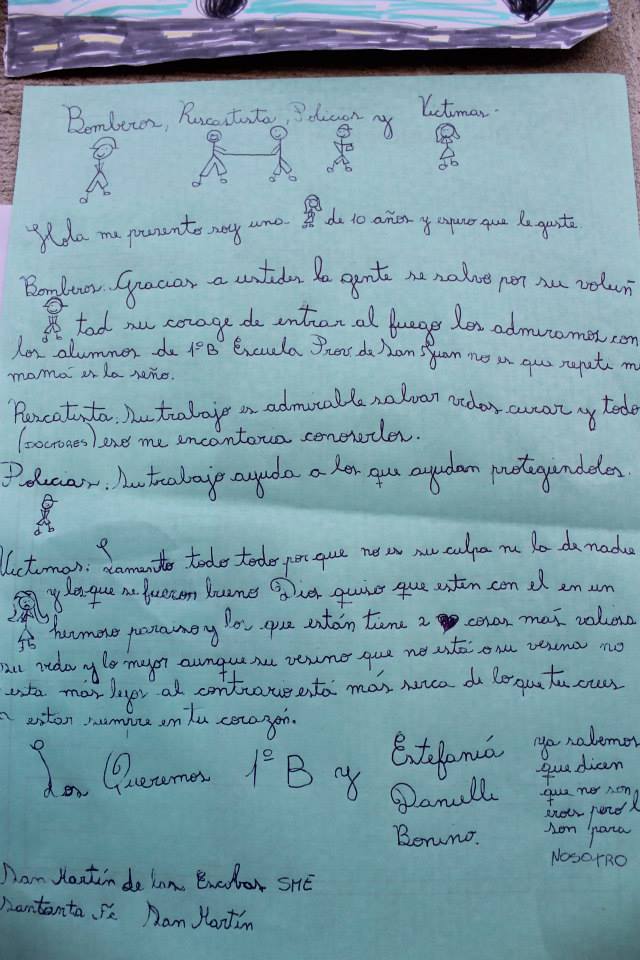 Bomberos, Rescastista, Policias y Victimas.
Hola me presento soy una de 10 años y espero que le guste.
Bomberos. Gracias a ustedes la gente se salvo por su volun
tad su corage de entrar al fuego los admiramos con
los alumnos de 1º B Escuela Prov. de San Juan no es que repeti m
mamá es la seño.
Rescatista. Su trabajo es admirable salvar vidas curar y todo
(DOCTORES) eso me encantaria conoserlos.
Policias. Su trabajo ayuda a los que ayudan protegiéndolos.
Victimas: Lamento todo todo por que no es su culpa ni la de nadie
y los que se fueron bueno Dios quiso que esten con el en un
hermoso paraiso y los que están tiene 2 cosas más valiosa
su vida y lo mejor aunque su vesino que no está o su vesina no
esta más lejos al contrario está más serca de lo que tu crees
estar siempre en tu corazón.
Los Queremos 1º B y
Estefaniá
Danielle
Bonino.
ya sabemos
que dicen
que no son
eroes pero l
son para
NOSOTRO
San Martín de las Escobas SME
Santanta Fé San Martín